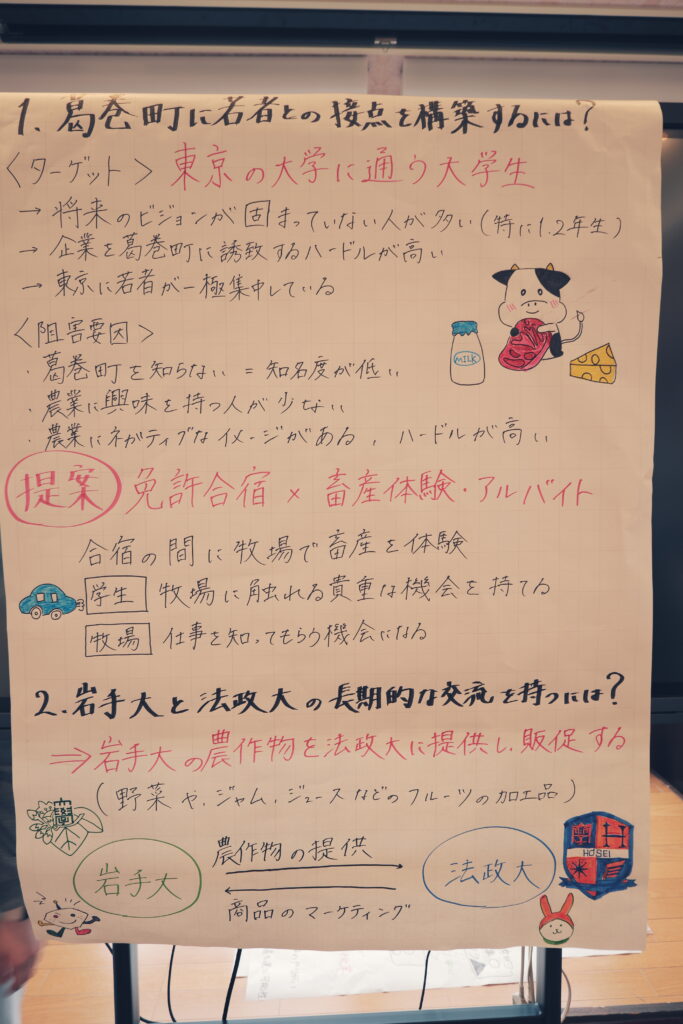 1. 葛巻町に若者との接点を構築するには?
〈ターゲット〉 東京の大学に通う大学生
→ 将来のビジョンが固まっていない人が多い(特に1.2年生)
→ 企業を葛巻町に誘致するハードルが高い
→ 東京に若者が一極集中している
〈阻害要因〉
・葛巻町を知らない = 知名度が低い
・農業に興味を持つ人が少ない
・農業にネガティブなイメージがある , ハードルが高い
MILK
提案 免許合宿 × 畜産体験・アルバイト
合宿の間に牧場で畜産を体験
学生 牧場に触れる貴重な機会を持てる
牧場 仕事を知ってもらう機会になる
2.岩手大と法政大の長期的な交流を持つには?
⇒岩手大の農作物を法政大に提供し、販促する
(野菜や、ジャム、ジュースなどのフルーツの加工品)
岩手大 農作物の提供 法政大
商品のマーケティング
學
H
HOSEI